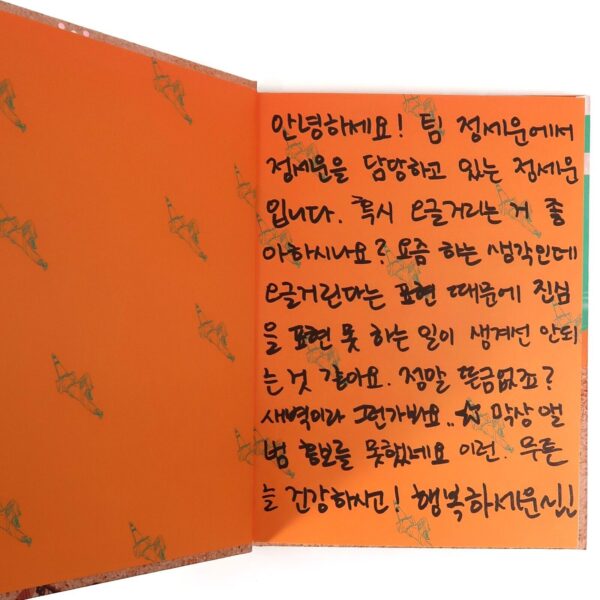 안녕하세요! 팀 정세운에서
정세운을 담당하고 있는 정세운
입니다. 혹시 오글거리는거 좋
아하시나요? 요즘 하는 생각인데
오글거린다는 표현 때문에 진심
을 표현 못 하는 일이 생겨선 안되
는 것 같아요. 정말 뜬금없죠?
새벽이라 그런가봐요..☆ 막상 앨
범 홍보를 못했네요 이런. 무튼
늘 건강하시고! 행복하세운